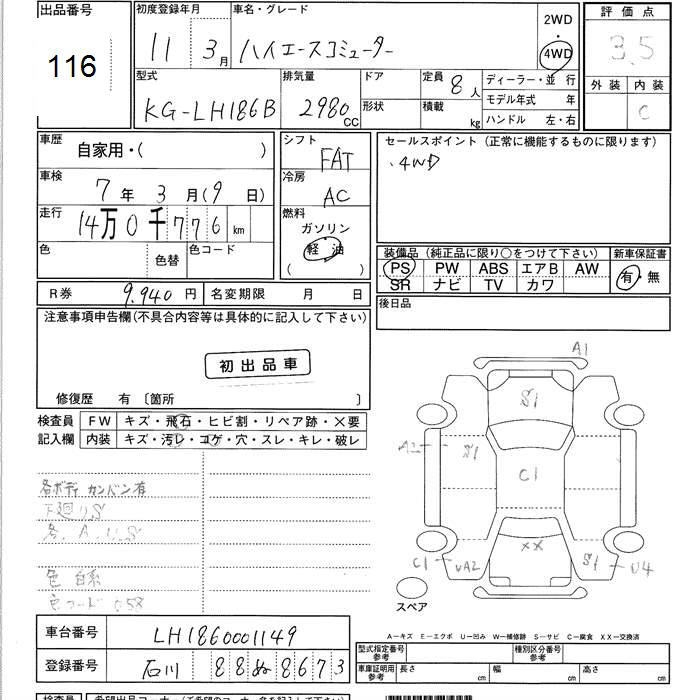 出品番号
116
初度登録年月
11 3月
車名・グレード
ハイエースコミューター
2WD
・
4WD
評価点
3.5
外装 内装
C
型式
KG-LH186B
排気量
2980 CC
ドア
形状
定員
8人
積載
kg
ディーラー・並行
モデル年式 年
ハンドル 左・右
車歴
自家用・( )
車検
7年 3月(9日)
走行
14万0千776 km
色
色替
色コード
シフト
FAT
冷房
AC
燃料
ガソリン
軽油
( )
セールスポイント (正常に機能するものに限ります)
.4WD
装備品 (純正品に限り○をつけて下さい)
PS PW ABS エアB AW
SR ナビ TV カワ
新車保証書
有・無
後日品
R券 9.940円
名変期限 月 日
注意事項申告欄(不具合内容等は具体的に記入して下さい)
初出品車
修復歴 有 〔箇所 〕
検査員
記入欄
FW キズ・飛石・ヒビ割・リペア跡・×要
内装 キズ・汚レ・コゲ・穴・スレ・キレ・破レ
各ボディ カンバン有
下廻りS
各、A.U.S
色 白系
色コード 058
A1
S1
A2
S1
C1
XX
C1
UA2
S1
U4
スペア
A-キズ E-エクボ U-凹み W-補修跡 S-サビ C-腐食 XX-交換済
車台番号 LH1860001149
登録番号 石川 88ぬ8673
型式指定番号
参考
種別区分番号
参考
車庫証明用
参考
長さ cm
幅 cm
高さ cm